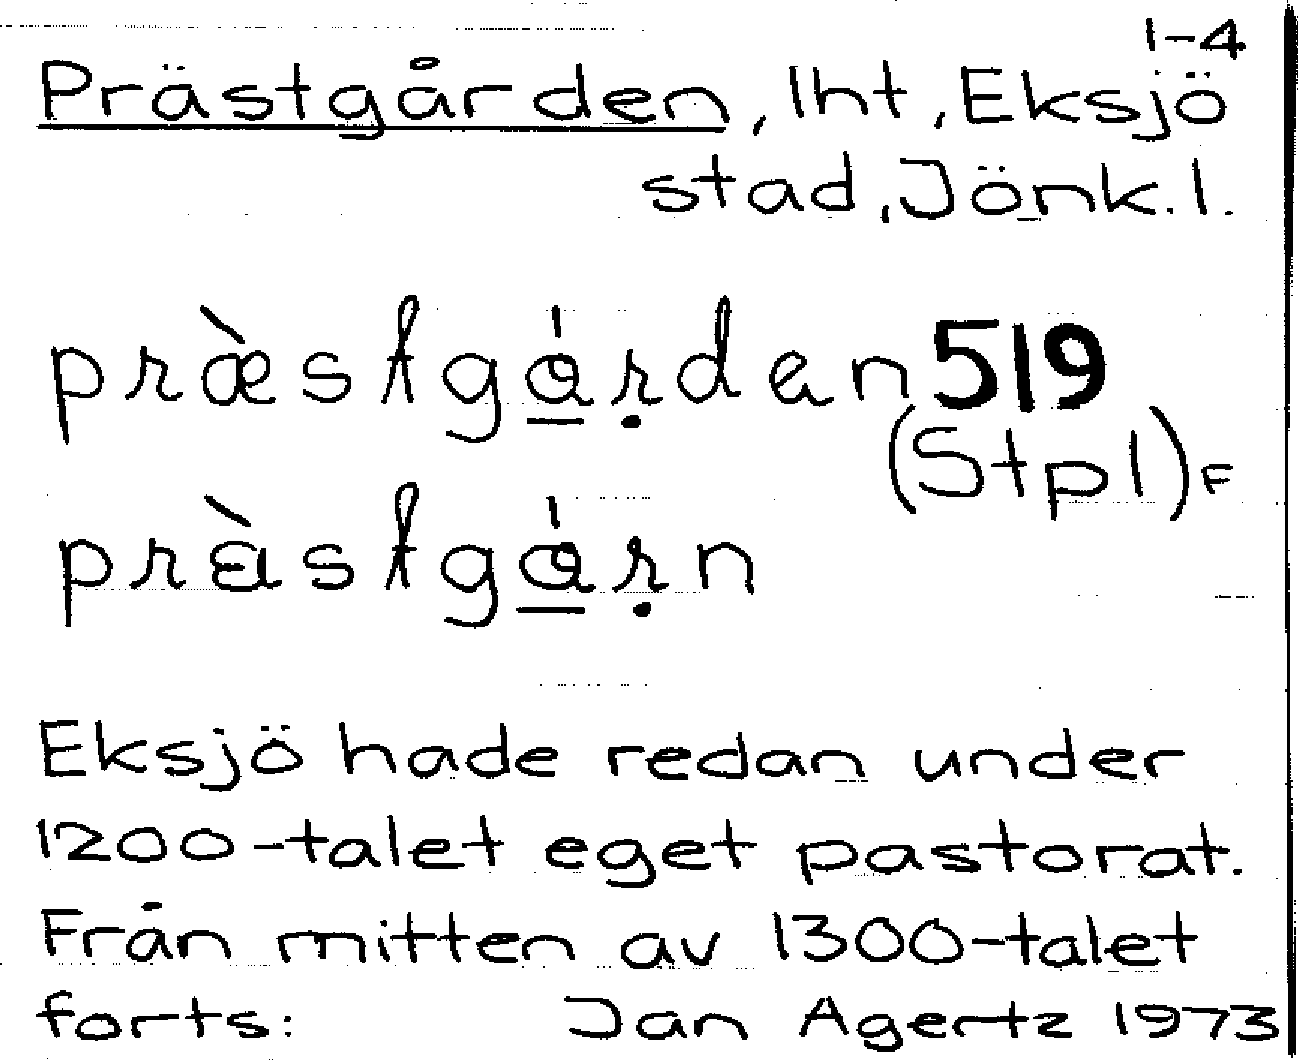 1-4
Prästgården, lht, Eksjö
stad, Jönk.l.
præ̀stgǻṛdan 519
(Stpl)F
prästgǻṛn
Eksjö hade redan under
1200-talet eget pastorat.
Från mitten av 1300-talet
forts: Jan Agertz 1973